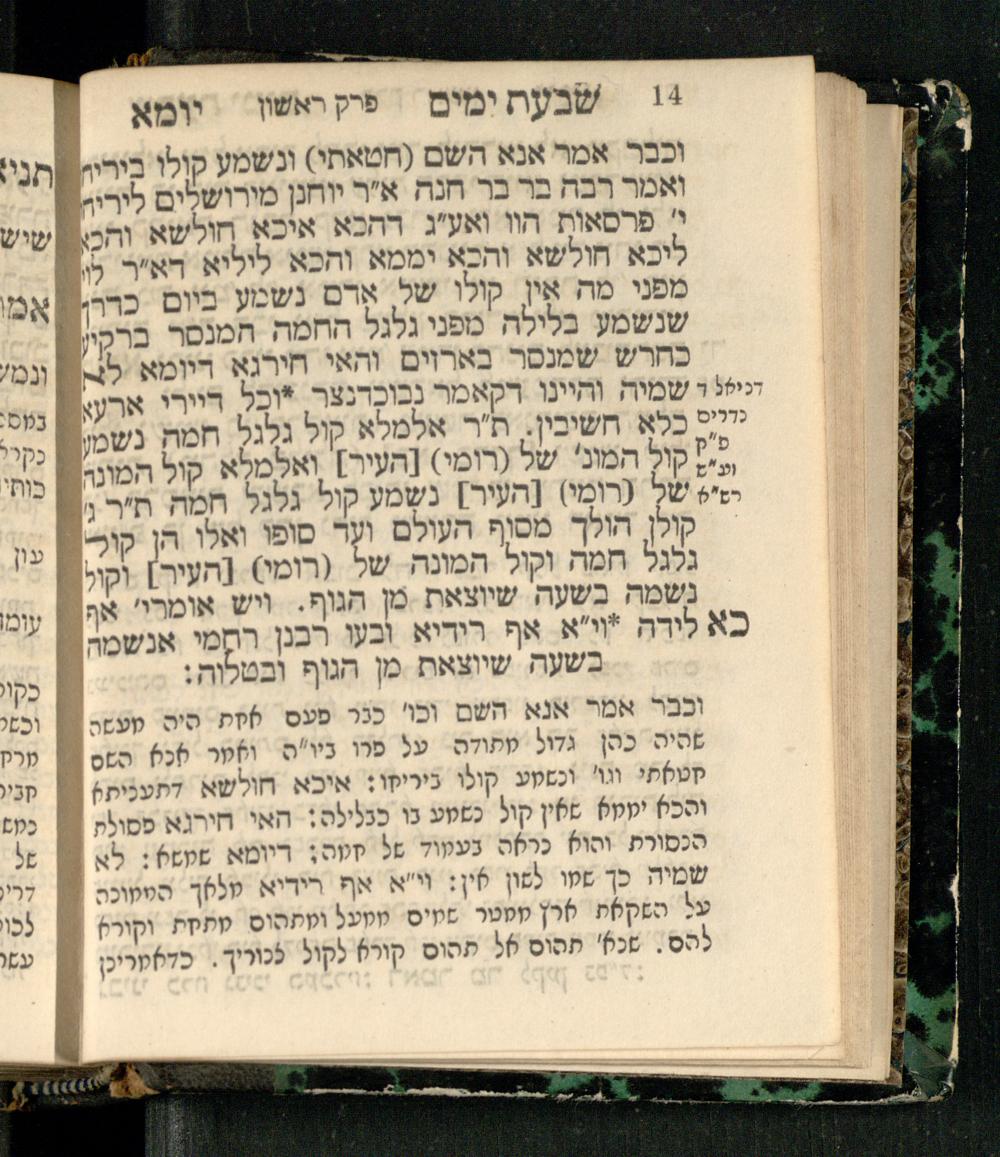 14 שבעת ימים פרק ראשון יומא
וכבר אמר אנא השם (חטאתי) ונשמע קולו ביריחו
ואמר רבה בר בר חנה א״ר יוחנן מירושלים ליריחו
י׳ פרסאות הוו ואע״ג דהכא איכא חולשא והכא
ליכא חולשא והכא יממא והכא ליליא דא״ר לוי
מפני מה אין קולו של אדם נשמע ביום כדרך
שנשמע בלילה מפני גלגל החמה המנסר ברקיע
כחרש שמנסר בארזים והאי חירגא דיומא לא
שמיה והיינו דקאמר נבוכדנצר *וכל דיירי ארעא
כלא חשיבין. ת״ר אלמלא קול גלגל חמה נשמע
קול המונ׳ של (רומי) [העיר] ואלמלא קול המונה
של (רומי) [העיר] נשמע קול גלגל חמה ת״ר ג׳
קולן הולך מסוף העולם ועד סופו ואלו הן קול
גלגל חמה וקול המונה של (רומי) [העיר] וקול
נשמה בשעה שיוצאת מן הגוף. ויש אומרי׳ אף
לידה *וי״א אף רידיא ובעו רבנן רחמי אנשמה
בשעה שיוצאת מן הגוף ובטלוה:
דניאל ד
נדרים
פ״ק
וע״ש
רש״א
כא
וכבר אמר אנא השם וכו׳ כבר פעם אחת היה מעשה
שהיה כהן גדול מתודה על פרו ביו״ה ואמר אנא השם
חטאתי וגו׳ ונשמע קולו ביריחו: איכא חולשא דתעניתא
והכא יממא שאין קול נשמע בו כבלילה: האי חירגא פסולת
הנסורת והוא נראה בעמוד של חמה: דיומא שמשא: לא
שמיה כך שמו לשון אין: וי״א אף רידיא מלאך הממונה
על השקאת ארץ ממטר שמים ממעל ומתהום מתחת וקורא
להם. שנא׳ תהום אל תהום קורא לקול צנוריך. כדאמרינן
תניא
שיש
אמר
עון
של